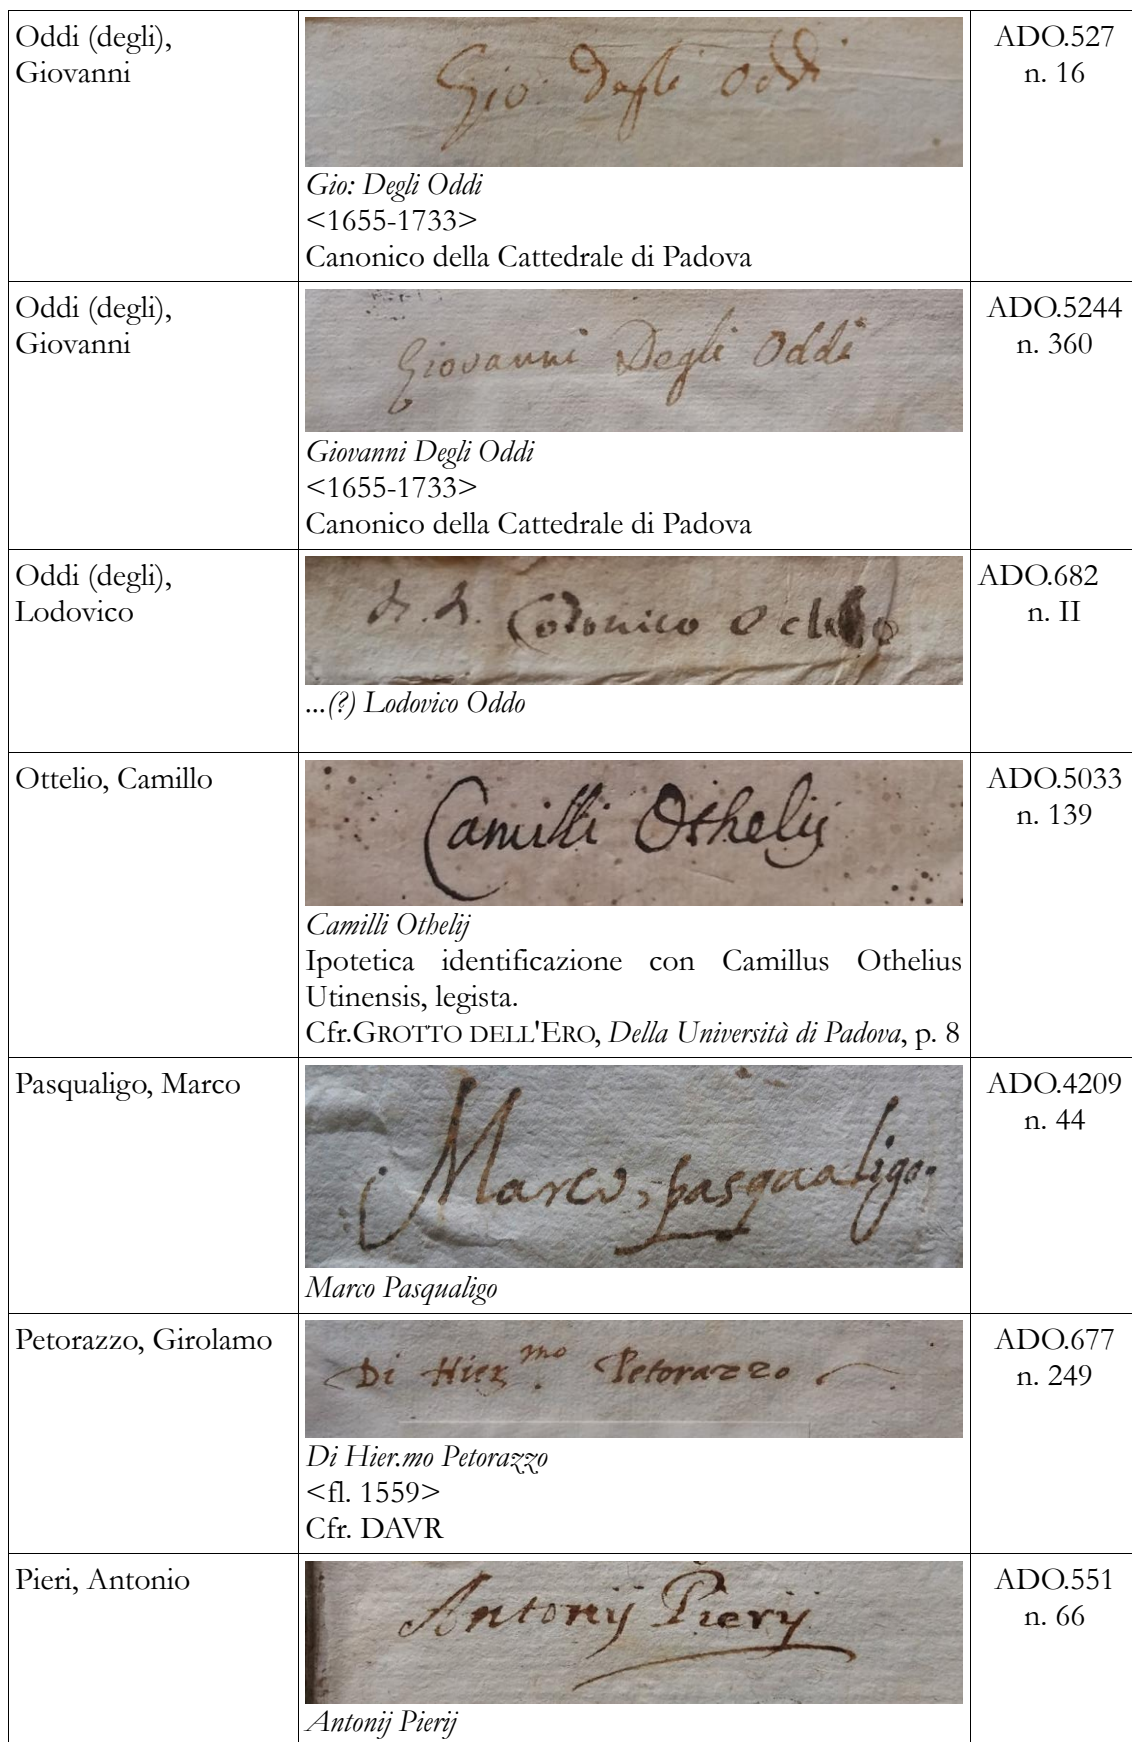 Oddi (degli),
Giovanni
Gio: Degli Oddi
Gio: Degli Oddi
<1655-1733>
Canonico della Cattedrale di Padova
ADO.527
n. 16
Oddi (degli),
Giovanni
Giovanni Degli Oddi
Giovanni Degli Oddi
<1655-1733>
Canonico della Cattedrale di Padova
ADO.5244
n. 360
Oddi (degli),
Lodovico
Lodovico
...(?) Lodovico Oddo
ADO.682
n. II
Ottelio, Camillo
Camilli Othelij
Camilli Othelij
Ipotetica identificazione con Camillus Othelius
Utinensis, legista.
Cfr.GROTTO DELL'ERO, Della Università di Padova, p. 8
ADO.5033
n. 139
Pasqualigo, Marco
Marco, pasqualigo.
Marco Pasqualigo
ADO.4209
n. 44
Petorazzo, Girolamo
Di Hier.mo Petorazzo
Di Hier.mo Petorazzo
<fl. 1559>
Cfr. DAVR
ADO.677
n. 249
Pieri, Antonio
Antonij Pierij
Antonij Pierij
ADO.551
n. 66